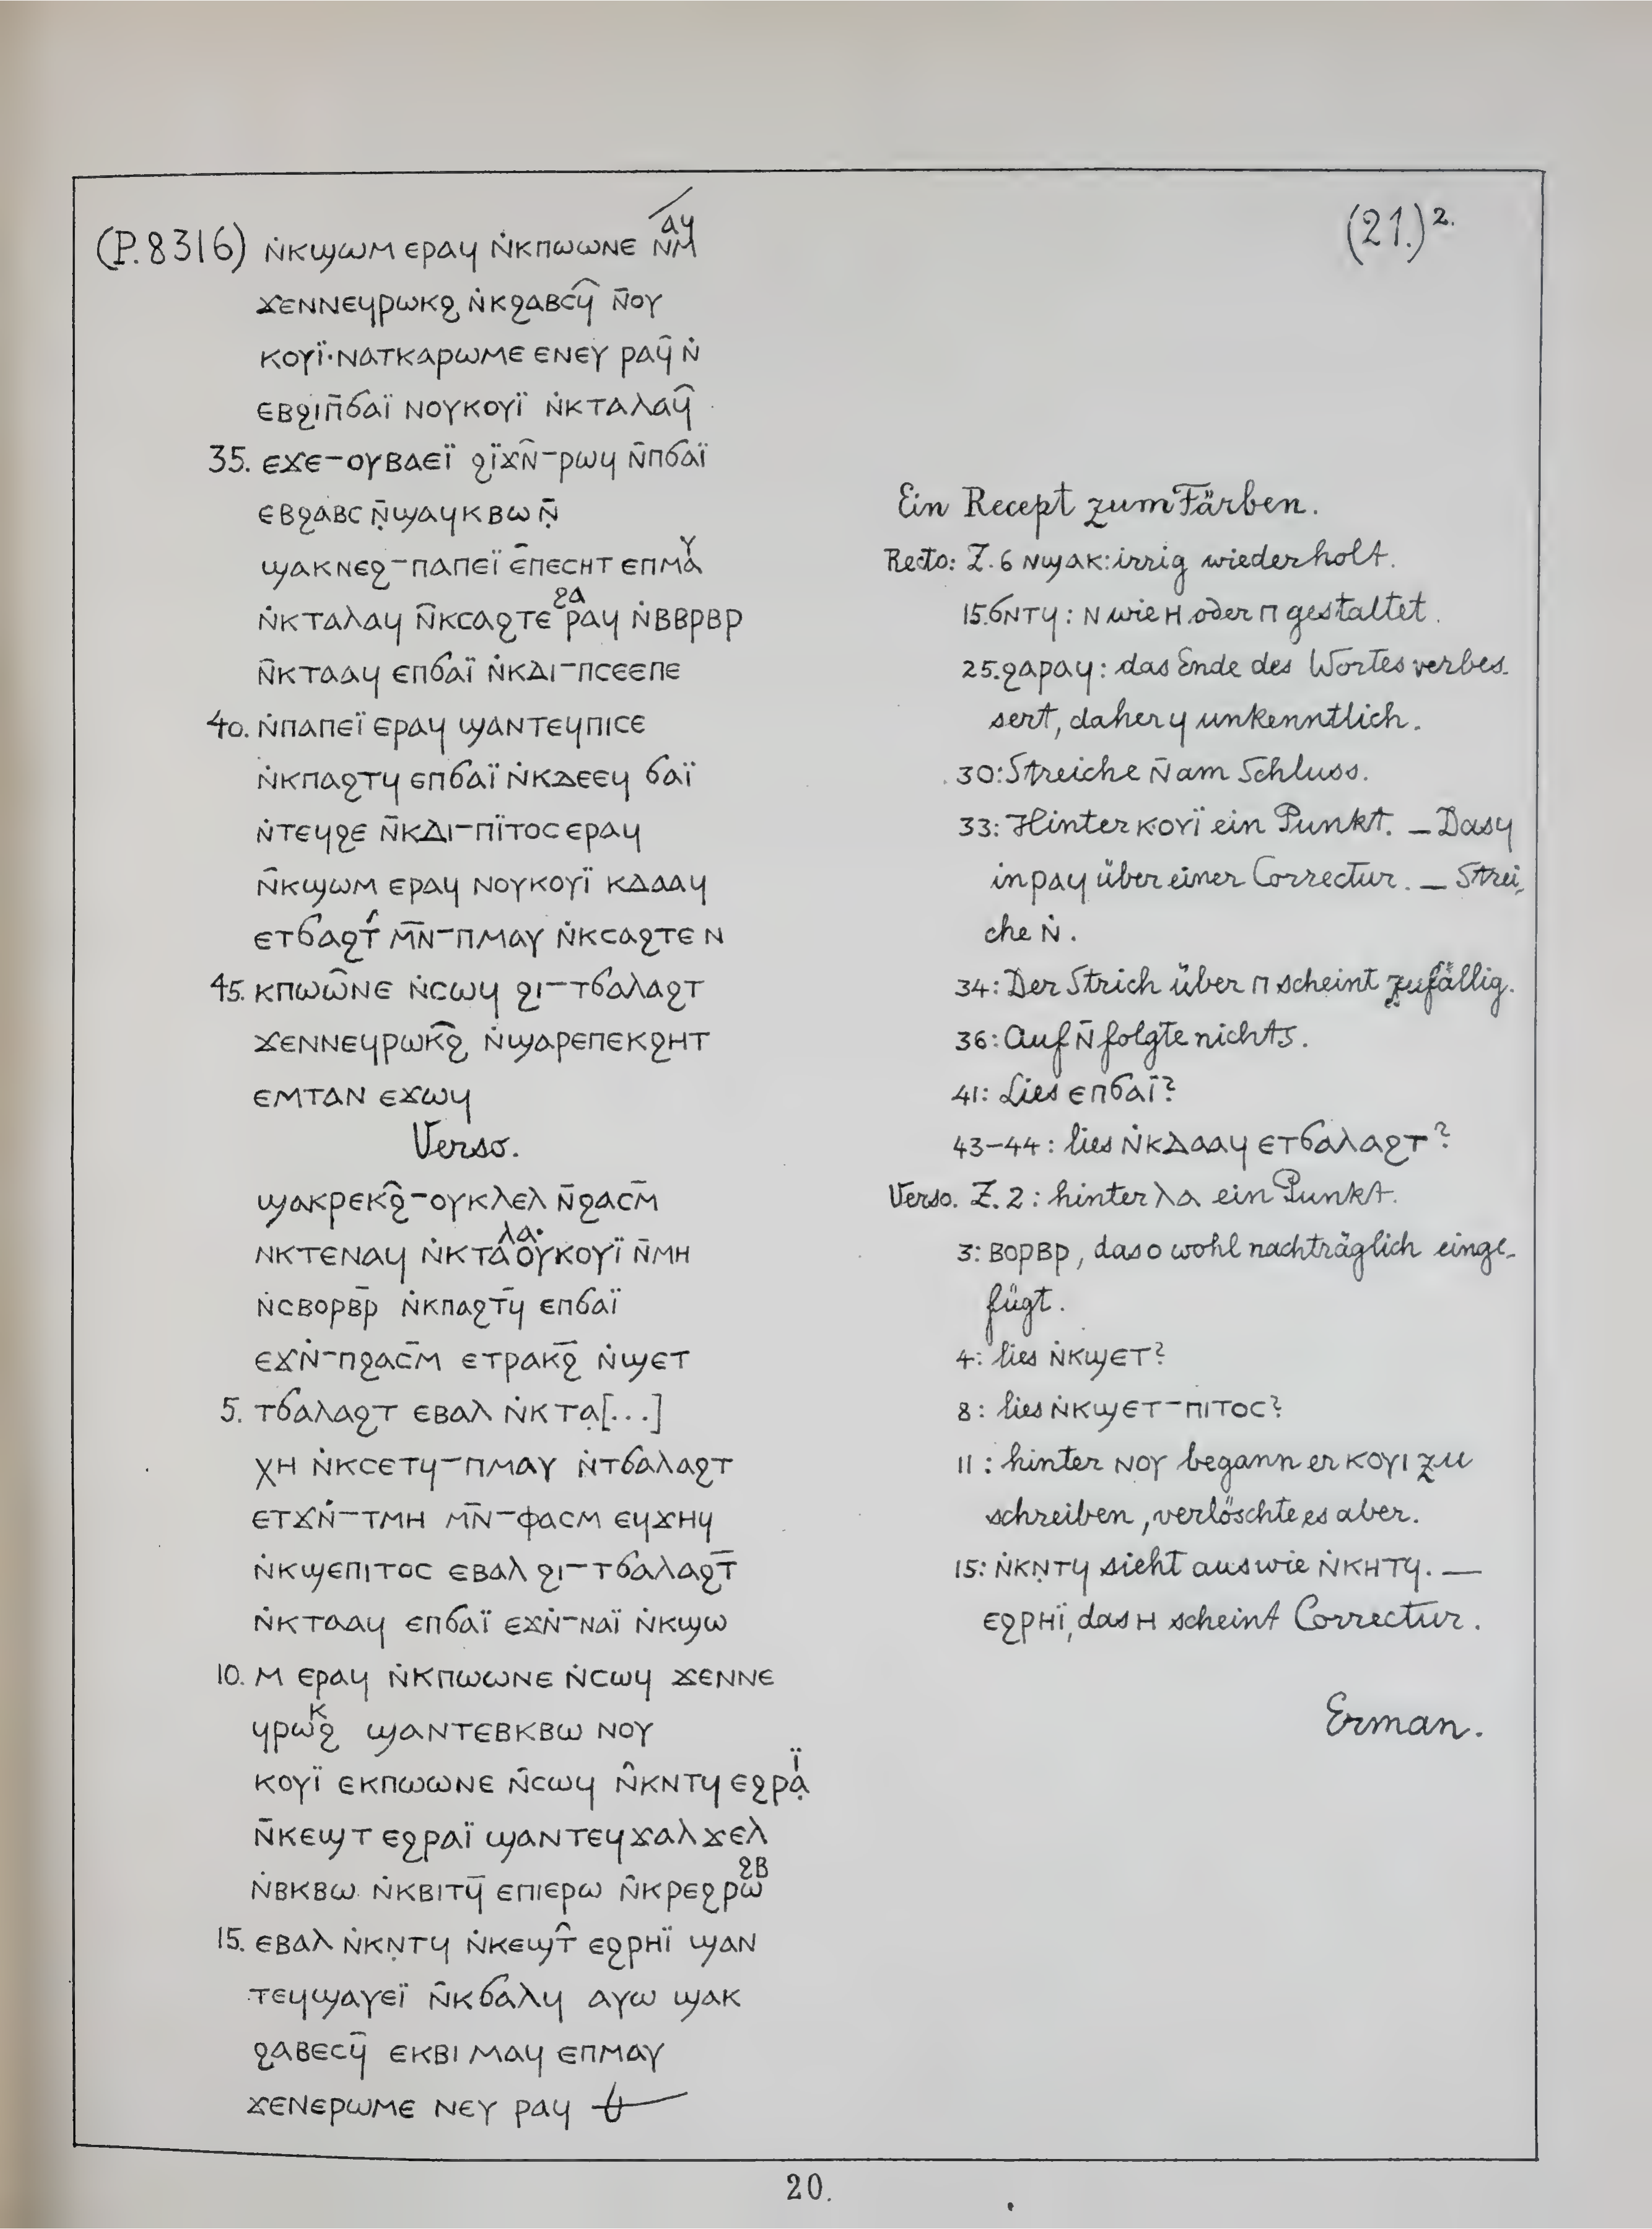 (P.8316) ⲚⲔϢⲰⲘ ⲈⲢⲀϤ ⲚⲔⲠⲰⲰⲚⲈ ⲚⲘⲀϤ
(21.)².
ϪⲈⲚⲚⲈϤⲢⲰⲔϨ ⲚⲔϨⲀⲂⲤϤ̄ Ⲛ̄ⲞⲨ
ⲔⲞⲨⲒ̈·ⲚⲀⲦⲔⲀⲢⲰⲘⲈ ⲈⲚⲈⲨ ⲢⲀϤ̄ Ⲛ̇
ⲈⲂϨⲒⲠ̄ϬⲀⲒ̈ ⲚⲞⲨⲔⲞⲨⲒ̈ Ⲛ̇ⲔⲦⲀⲖⲀϤ̂
35. ⲈϪⲈ-ⲞⲨⲂⲀⲈⲒ̈ ϨⲒ̈ϪⲚ̂-ⲢⲰϤ Ⲛ̄ⲠϬⲀⲒ̈
ⲈⲂϨⲀⲂⲤ Ⲛ̣̄ϢⲀϤⲔⲂⲰ Ⲛ̣̄
ϢⲀⲔⲚⲈϨ-ⲠⲀⲠⲈⲒ̈ Ⲉ̄ⲠⲈⲤⲎⲦ ⲈⲠⲘⲀⲨ
Ⲛ̇ⲔⲦⲀⲖⲀϤ Ⲛ̂ⲔⲤⲀϨⲦⲈ ϨⲀⲢⲀϤ Ⲛ̇ⲂⲂⲢⲂⲢ
Ⲛ̄ⲔⲦⲀⲀϤ ⲈⲠϬⲀⲒ̈ Ⲛ̇ⲔⲆⲒ-ⲠⲤⲈⲈⲠⲈ
40. Ⲛ̇ⲠⲀⲠⲈⲒ̈ ⲈⲢⲀϤ ϢⲀⲚⲦⲈϤⲠⲒⲤⲈ
Ⲛ̇ⲔⲠⲀϨⲦϤ ⲈⲠϬⲀⲒ̈ Ⲛ̇ⲔⲆⲈⲈϤ ϬⲀⲒ̈
Ⲛ̇ⲦⲈϤϨⲈ Ⲛ̄ⲔⲆⲒ-ⲠⲒ̈ⲦⲞⲤ ⲈⲢⲀϤ
Ⲛ̄ⲔϢⲰⲘ ⲈⲢⲀϤ ⲚⲞⲨⲔⲞⲨⲒ̈ ⲔⲆⲀⲀϤ
ⲈⲦϬⲀϨⲦ Ⲙ̄Ⲛ̄-ⲠⲘⲀⲨ Ⲛ̇ⲔⲤⲀϨⲦⲈ Ⲛ
45. ⲔⲠⲰⲰ̂ⲚⲈ Ⲛ̇ⲤⲰϤ ϨⲒ-ⲦϬⲀⲖⲀϨⲦ
ϪⲈⲚⲚⲈϤⲢⲰⲔ̂Ϩ Ⲛ̇ϢⲀⲢⲈⲠⲈⲔϨⲎⲦ
ⲈⲘⲦⲀⲚ ⲈϪⲰϤ
Verso.
ϢⲀⲔⲢⲈⲔϨ̂-ⲞⲨⲔⲖⲈⲖ Ⲛ̄ϨⲀⲤⲘ̄
ⲚⲔⲦⲈⲚⲀϤ Ⲛ̇ⲔⲦⲀⲖⲀ· ⲞⲨⲔⲞⲨⲒ̈ Ⲛ̄ⲘⲎ
Ⲛ̇ⲤⲂⲞⲢⲂⲢ̄ Ⲛ̇ⲔⲠⲀϨⲦ̄Ϥ ⲈⲠϬⲀⲒ̈
ⲈϪⲚ̇-ⲠϨⲀⲤ̄Ⲙ ⲈⲦⲢⲀⲔϨ̄ Ⲛ̇ϢⲈⲦ
5. ⲦϬⲀⲖⲀϨⲦ ⲈⲂⲀⲖ Ⲛ̇ⲔⲦⲀ̣[...]
ⲬⲎ Ⲛ̇ⲔⲤⲈⲦϤ-ⲠⲘⲀⲨ Ⲛ̇ⲦϬⲀⲖⲀϨⲦ
ⲈⲦϪⲚ̇-ⲦⲘⲎ Ⲙ̄Ⲛ̄-ⲪⲀⲤⲘ ⲈϤϪⲎϤ
Ⲛ̇ⲔϢⲈⲠⲒⲦⲞⲤ ⲈⲂⲀⲖ ϨⲒ-ⲦϬⲀⲖⲀϨⲦ̄
Ⲛ̇ⲔⲦⲀⲀϤ ⲈⲠϬⲀⲒ̈ ⲈϪⲚ̇-ⲚⲀⲒ̈ Ⲛ̇ⲔϢⲰ
10. Ⲙ ⲈⲢⲀϤ Ⲛ̇ⲔⲠⲰⲰⲚⲈ Ⲛ̇ⲤⲰϤ ϪⲈⲚⲚⲈ
ϤⲢⲰⲔϨ ϢⲀⲚⲦⲈⲂⲔⲂⲰ ⲚⲞⲨ
ⲔⲞⲨⲒ̈ ⲈⲔⲠⲰⲰⲚⲈ Ⲛ̄ⲤⲰϤ Ⲛ̂ⲔⲚⲦϤ ⲈϨⲢⲀ̣Ⲓ̈
Ⲛ̄ⲔⲈϢⲦ ⲈϨⲢⲀⲒ̈ ϢⲀⲚⲦⲈϤϪⲀⲖϪⲈⲖ
Ⲛ̇ⲂⲔⲂⲰ Ⲛ̇ⲔⲂⲒⲦϤ̄ ⲈⲠⲒⲈⲢⲰ Ⲛ̂ⲔⲢⲈϨⲢⲰϨⲂ
15. ⲈⲂⲀⲖ Ⲛ̇ⲔⲚ̣ⲦϤ Ⲛ̇ⲔⲈϢⲦ̂ ⲈϨⲢⲎⲒ̈ ϢⲀⲚ
ⲦⲈϤϢⲀⲨⲈⲒ̈ Ⲛ̂ⲔϬⲀⲖϤ ⲀⲨⲰ ϢⲀⲔ
ϨⲀⲂⲈⲤϤ̄ ⲈⲔⲂⲒ ⲘⲀϤ ⲈⲠⲘⲀⲨ
ϪⲈⲚⲈⲢⲰⲘⲈ ⲚⲈⲨ ⲢⲀϤ
Ein Recept zum Färben.
Recto: Z. 6 ⲚϢⲀⲔ: irrig wiederholt.
15. ϬⲚⲦϤ: Ⲛ wie Ⲏ oder Ⲡ gestaltet.
25. ϨⲀⲢⲀϤ: das Ende des Wortes verbes-
sert, daher Ϥ unkenntlich.
30: Streiche Ⲛ̄ am Schluss.
33: Hinter ⲔⲞⲨⲒ̈ ein Punkt. — Das Ϥ
in ⲢⲀϤ über einer Correctur. — Strei-
che Ⲛ̇.
34: Der Strich über Ⲡ scheint zufällig.
36: Auf Ⲛ̄ folgte nichts.
41: Lies ⲈⲠϬⲀⲒ̈?
43-44: lies Ⲛ̇ⲔⲆⲀⲀϤ ⲈⲦϬⲀⲖⲀϨⲦ?
Verso. Z. 2: hinter ⲖⲀ ein Punkt.
3: ⲂⲞⲢⲂⲢ, das Ⲟ wohl nachträglich einge-
fügt.
4: lies Ⲛ̇ⲔϢⲈⲦ?
8: lies Ⲛ̇ⲔϢⲈⲦ-ⲠⲒⲦⲞⲤ?
11: hinter ⲚⲞⲨ begann er ⲔⲞⲨⲒ zu
schreiben, verlöschte es aber.
15: Ⲛ̇ⲔⲚ̣ⲦϤ sieht aus wie Ⲛ̇ⲔⲎⲦϤ. —
ⲈϨⲢⲎⲒ̈, das Ⲏ scheint Correctur.
Erman.
20.